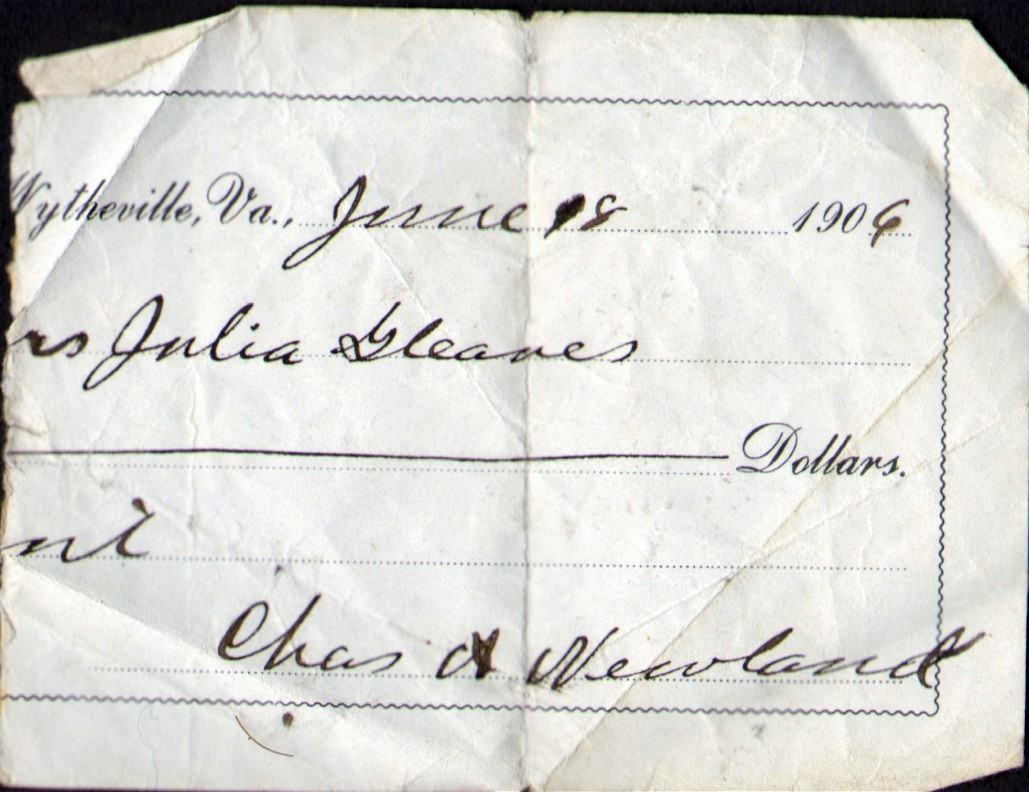 Wytheville, Va., June 18 1906
rs Julia Gleaves
Dollars.
nt
Chas A Newland